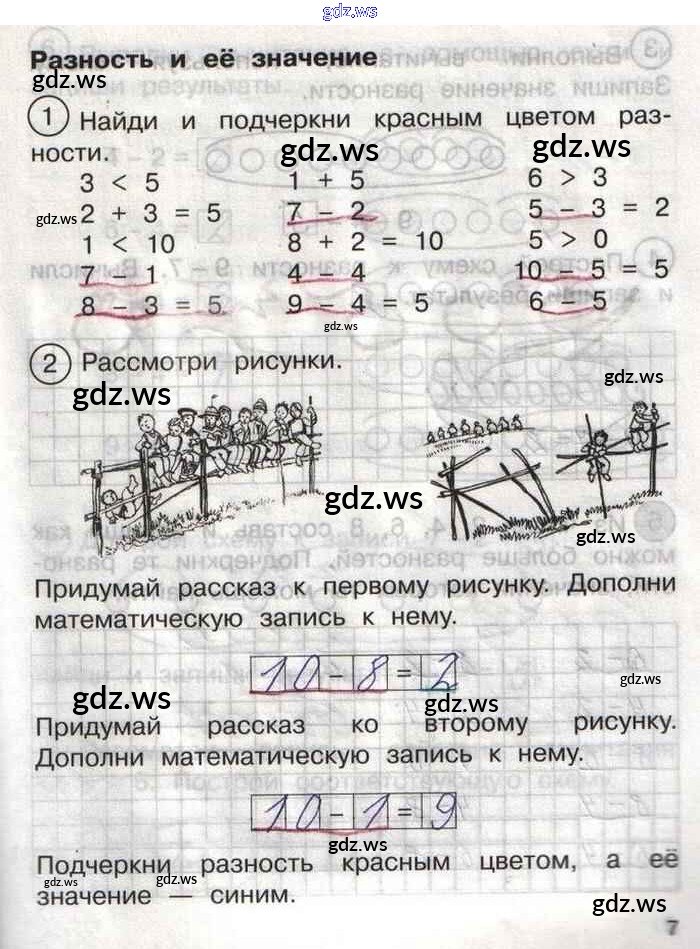 gdz.ws
Разность и её значение
gdz.ws
1 Найди и подчеркни красным цветом раз-
ности.
gdz.ws gdz.ws
3 < 5 1 + 5 6 > 3
gdz.ws
2 + 3 = 5 7 – 2 5 – 3 = 2
1 < 10 8 + 2 = 10 5 > 0
7 – 1 4 – 4 10 – 5 = 5
8 – 3 = 5 9 – 4 = 5 6 – 5
gdz.ws
2 Рассмотри рисунки.
gdz.ws gdz.ws
gdz.ws
gdz.ws
Придумай рассказ к первому рисунку. Дополни
математическую запись к нему.
10 – 8 = 2
gdz.ws
gdz.ws gdz.ws
Придумай рассказ ко второму рисунку.
Дополни математическую запись к нему.
10 – 1 = 9
gdz.ws
Подчеркни разность красным цветом, а её
gdz.ws gdz.ws
значение — синим.
gdz.ws
7